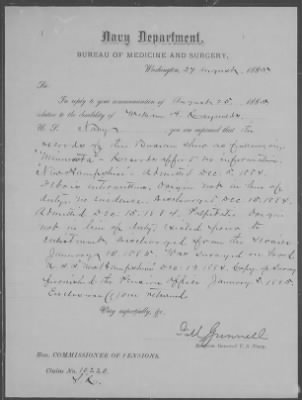 Navy Department,
BUREAU OF MEDICINE AND SURGERY,
Washington, 27 August, 1885
Sir:
In reply to your communication of August 25, 1885
relative to the disability of William H.
U. S. Navy, you are informed that the
records of this Bureau show as following
"Minnesota" Records afford no information.
"New Hampshire" Admitted Dec 5, 1884.
Febris intermittens, Origin not in line of
duty, no evidence. Discharged Dec 15, 1884.
Admitted Dec. 15, 1884. Origin
not in line of duty, existed prior to
enlistment, discharged from the Service
January 1885. Was surveyed on board
U.S.S. "New Hampshire" Dec 1884. Copy of Survey
furnished the Pension Office January 5, 1885.
returned
Very respectfully, &c.
Surgeon General U. S. Navy.
Hon. COMMISSIONER OF PENSIONS.
Claim No. 10,220.